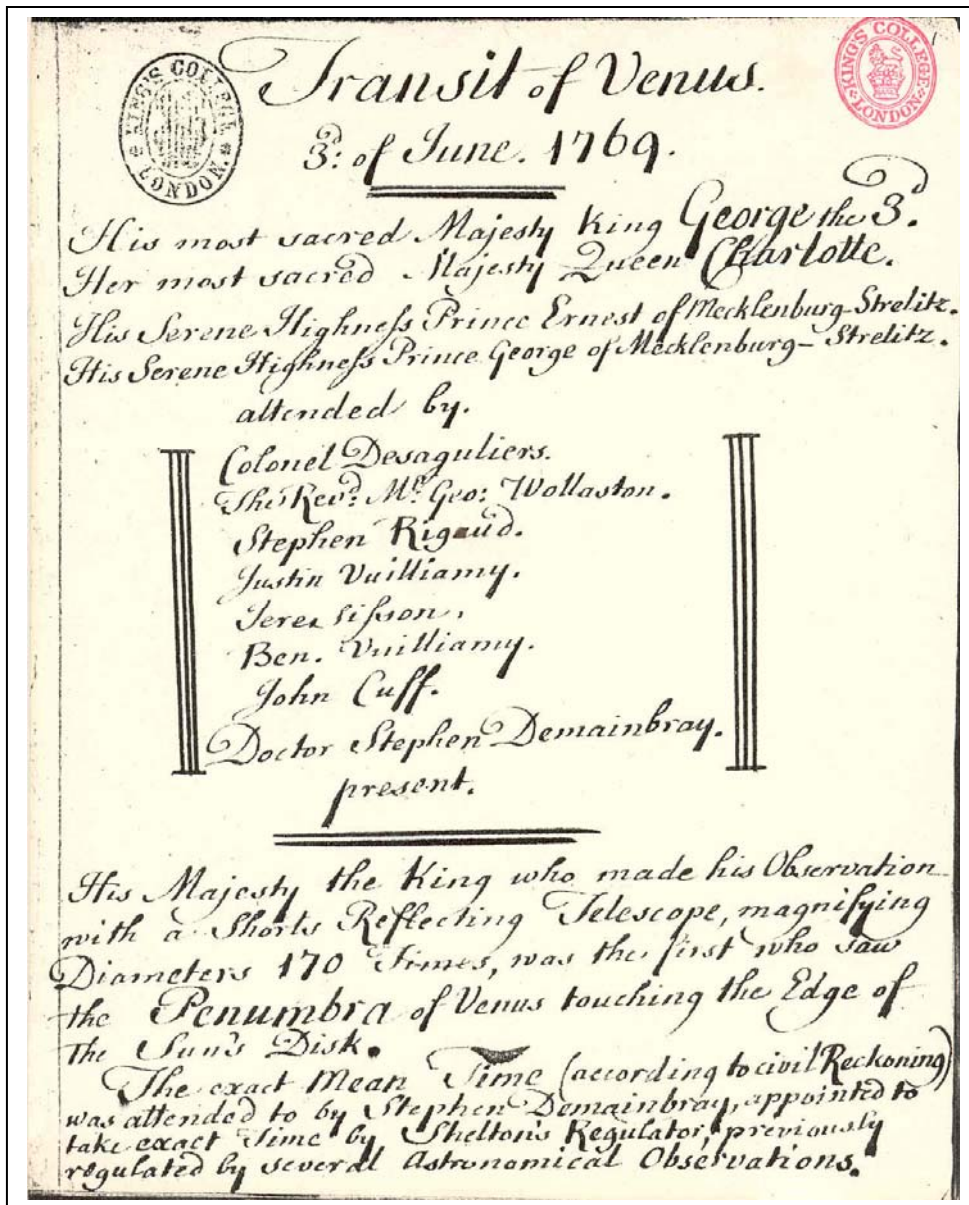 KING'S COLLEGE LONDON
KING'S COLLEGE LONDON
Transit of Venus.
3d: of June. 1769.
His most sacred Majesty King George the 3d.
Her most sacred Majesty Queen Charlotte.
His Serene Highneſs Prince Ernest of Mecklenburg-Strelitz.
His Serene Highneſs Prince George of Mecklenburg-Strelitz.
attended by.
Colonel Desaguliers.
The Revd: Mr. Geo: Wollaston.
Stephen Rigaud.
Justin Vuilliamy.
Jere. Siſson.
Ben. Vuilliamy.
John Cuff.
Doctor Stephen Demainbray.
present.
His Majesty the King who made his Observation
with a Shorts Reflecting Telescope, magnifying
Diameters 170 Times, was the first who saw
the Penumbra of Venus touching the Edge of
the Sun's Disk.
The exact Mean Time (according to civil Reckoning)
was attended to by Stephen Demainbray, appointed to
take exact Time by Shelton's Regulator, previously
regulated by several Astronomical Observations.